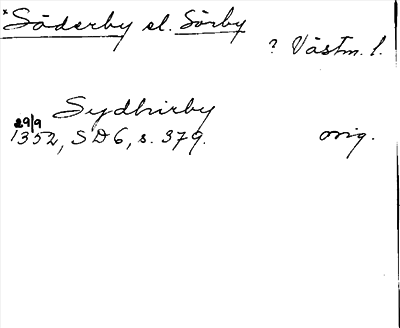 *Söderby el. Sörby
? Västm. l.
Sydhirby
29/9
1352, SD 6, s. 379. orig.